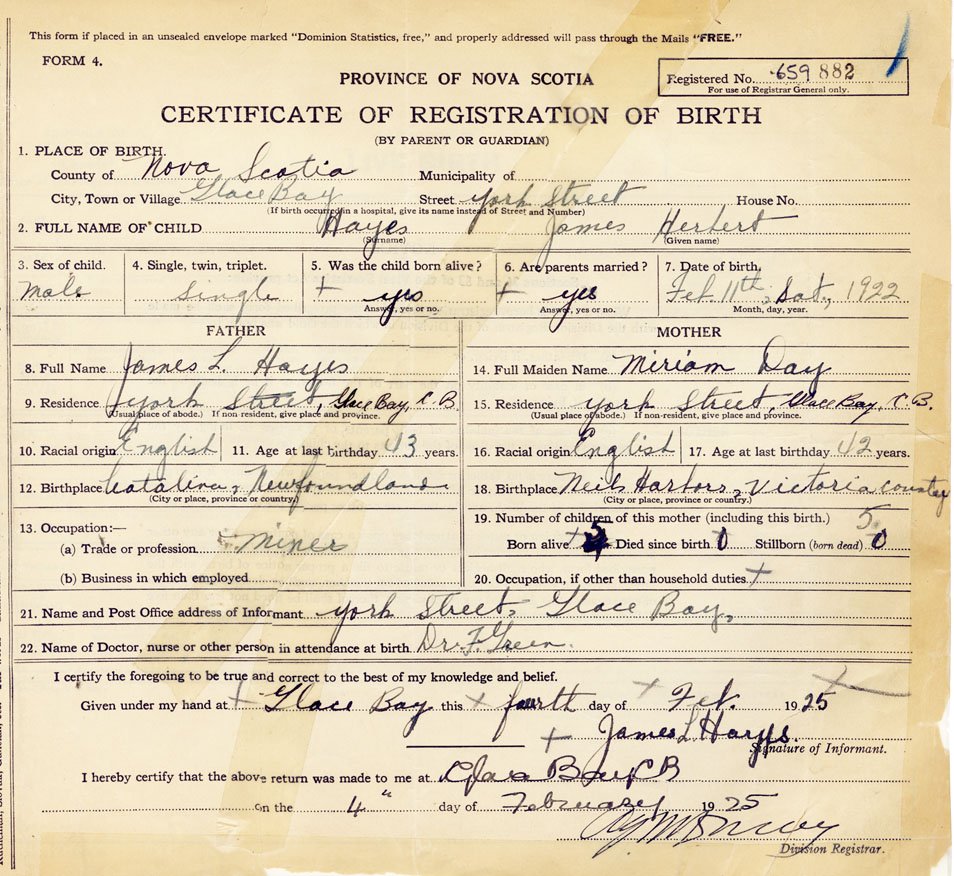 This form if placed in an unsealed envelope marked "Dominion Statistics, free," and properly addressed will pass through the Mails "FREE."
FORM 4.
PROVINCE OF NOVA SCOTIA
Registered No. 659 882
For use of Registrar General only.
CERTIFICATE OF REGISTRATION OF BIRTH
(BY PARENT OR GUARDIAN)
1. PLACE OF BIRTH.
County of Nova Scotia Municipality of
City, Town or Village Glace Bay Street York Street House No.
(If birth occurred in a hospital, give its name instead of Street and Number)
2. FULL NAME OF CHILD Hayes James Herbert
(Surname) (Given name)
3. Sex of child. 4. Single, twin, triplet. 5. Was the child born alive? 6. Are parents married? 7. Date of birth.
Male Single + yes + yes Feb. 11th, Sat., 1922
Answer, yes or no. Answer, yes or no. Month, day, year.
FATHER MOTHER
8. Full Name James L. Hayes 14. Full Maiden Name Miriam Day
9. Residence York Street, Glace Bay, C.B. 15. Residence York Street, Glace Bay, C.B.
(Usual place of abode.) If non resident, give place and province. (Usual place of abode.) If non-resident, give place and province.
10. Racial origin English 11. Age at last birthday 43 years. 16. Racial origin English 17. Age at last birthday 42 years.
12. Birthplace Catalina, Newfoundland 18. Birthplace Neils Harbors, Victoria county
(City or place, province or country) (City or place, province or country.)
13. Occupation:— 19. Number of children of this mother (including this birth.) 5
(a) Trade or profession Miner Born alive + 5 Died since birth 0 Stillborn (born dead) 0
(b) Business in which employed 20. Occupation, if other than household duties +
21. Name and Post Office address of Informant York Street, Glace Bay,
22. Name of Doctor, nurse or other person in attendance at birth Dr. F. Green.
I certify the foregoing to be true and correct to the best of my knowledge and belief.
Given under my hand at + Glace Bay this + fourth day of + Feb. 1925
+ James L Hayes.
Signature of Informant.
I hereby certify that the above return was made to me at Glace Bay CB
on the 4" day of February 1925
Division Registrar.